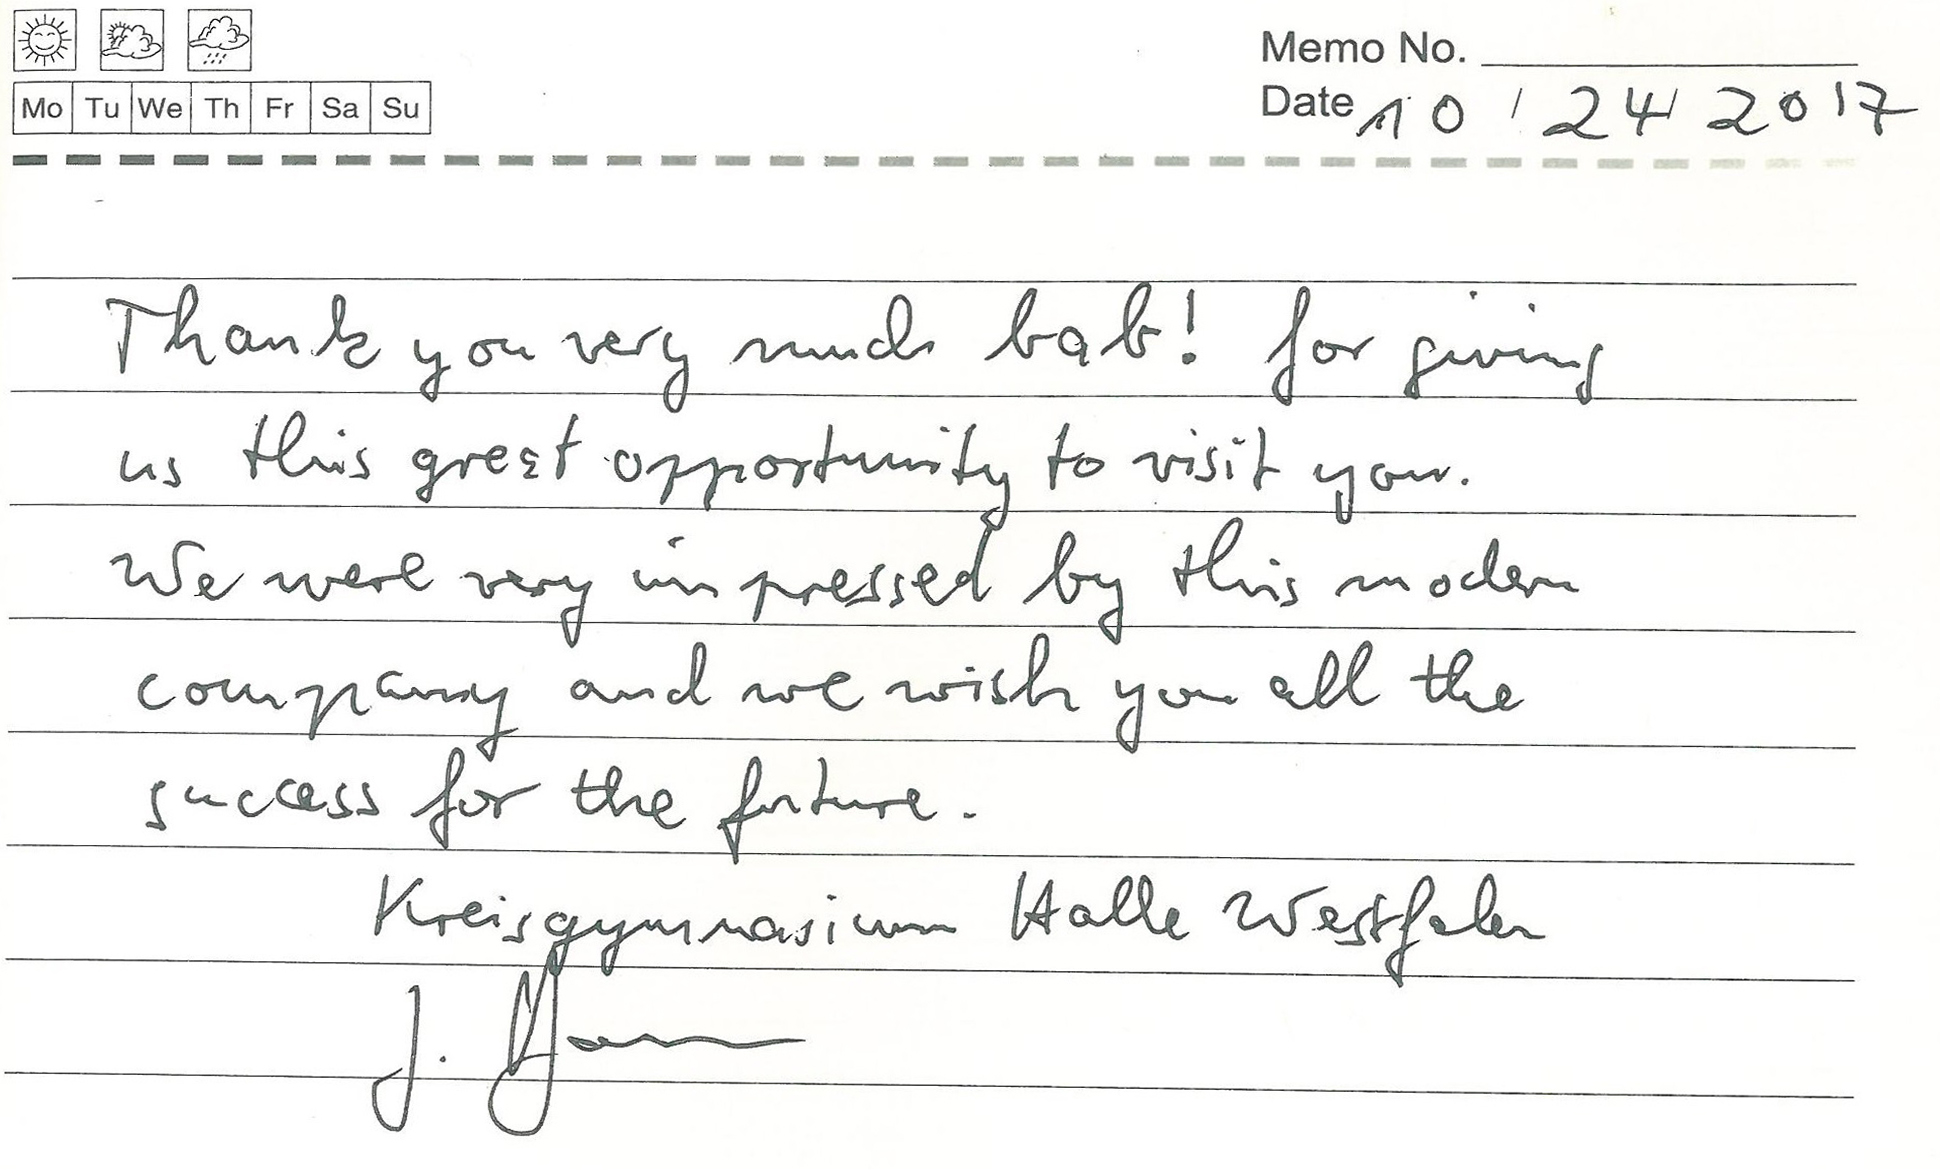 Memo No.
Date 10 / 24 / 2017
Mo Tu We Th Fr Sa Su
Thank you very much bab! for giving
us this great opportunity to visit you.
We were very impressed by this modern
company and we wish you all the
success for the future.
Kreisgymnasium Halle Westfalen
J.